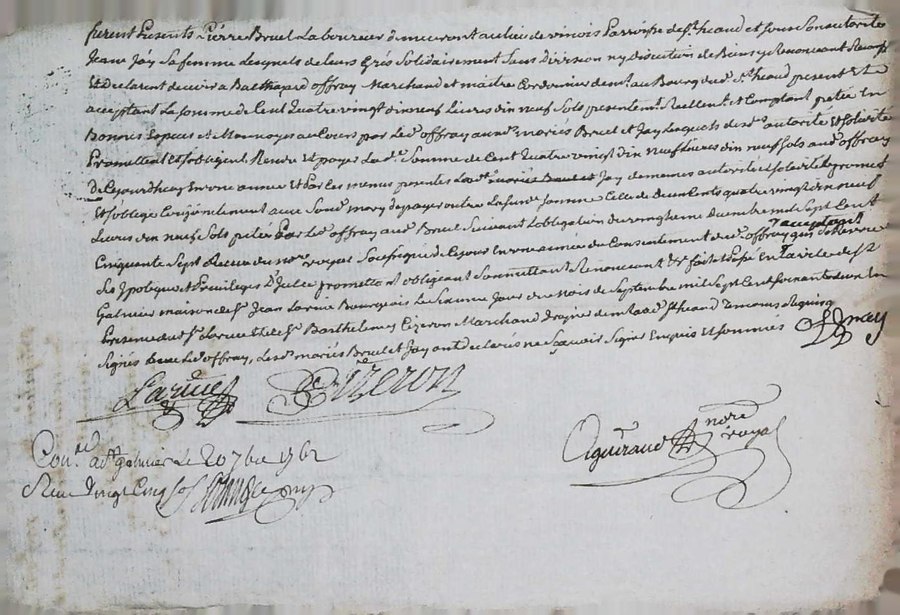 furent Présents Pierre Bruel Laboureur demeurant au lieu de vinois Parroisse de st heand et sous Son autorité
Jeane Jay Sa femme Lesquels de Leurs Grés Solidairement Sans Division ny Discution de Biens y Renonceant
Et declarent devoir a Balthazard offray Marchand et maitre Cordonnier demt au Bourg dud. st heand present et
acceptant La somme de Cent Quatre vingt dix neuf Livres dix neuf Sols presentemt Reellemt et Comptant en
Bonnes Especes et Monnoyes au Cours par led. offray auxd. mariés Bruel et Jay Lesquels de autorité et solidité
Promettent et s'obligent Rendre et payer Lad. Somme de Cent Quatre vingt dix Neuf Livres dix neuf Sols aud. offray
De Cejourdhuy En une année Et Par Les memes presentes Jay de memes autorité et solidité promet
Et s'oblige Conjointement avec Sond. mary de payer outre La Susd. Somme Celle de Deux Cents quatre vingt dix neuf
Livres dix neuf Sols par led. offray aud. Bruel Suivant L'obligation du vingtieme Decembre mil Sept Cent
Cinquante Sept Recue du nore royal Soussigné de Ce jour En une année du Consentement dud. offray acceptant
Ses Ipoteque et Privileges Promettant obligeant Soumettant Renonceant &r fait et Passé En La ville de st
Galmier maison de sr Jean Larue Bourgeois Le Jour du Mois de Septembre mil Sept Cent soixante deux En
Presence dud. sr Larue et de sr Barthelemy Cizeron Marchand dud. st heand Temoins Signés
Signés avec Led. offray, Lesd. mariés Bruel et Jay ont declarés ne Sçavoir Signer Enquis et sommés
Larue Cizeron
nore
royal
Con.lé a st galmier Le 20 7bre 1762
Reçu vingt Cinq sols